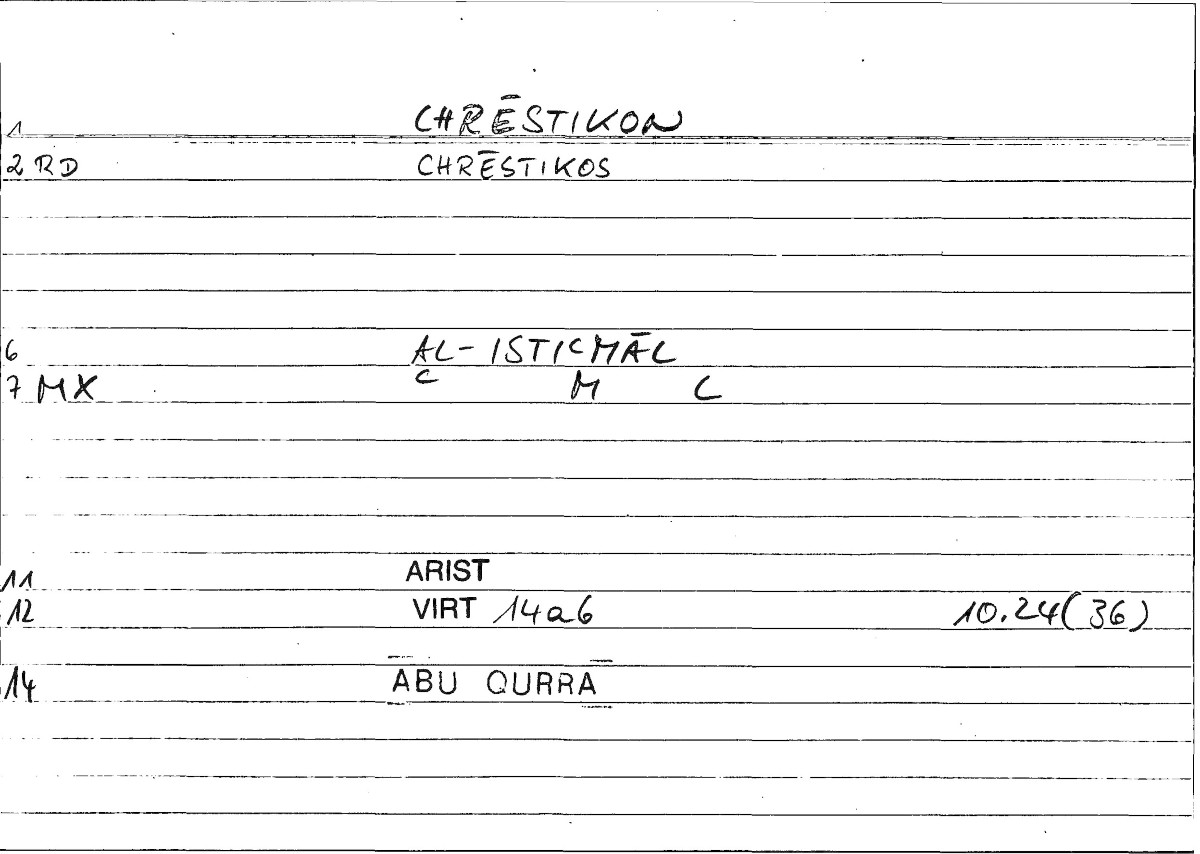 1 CHRĒSTIKON
2 RD CHRĒSTIKOS
6 AL-ISTICMĀL
7 MX C M C
11 ARIST
12 VIRT 14a6 10.24(36)
14 ABU QURRA